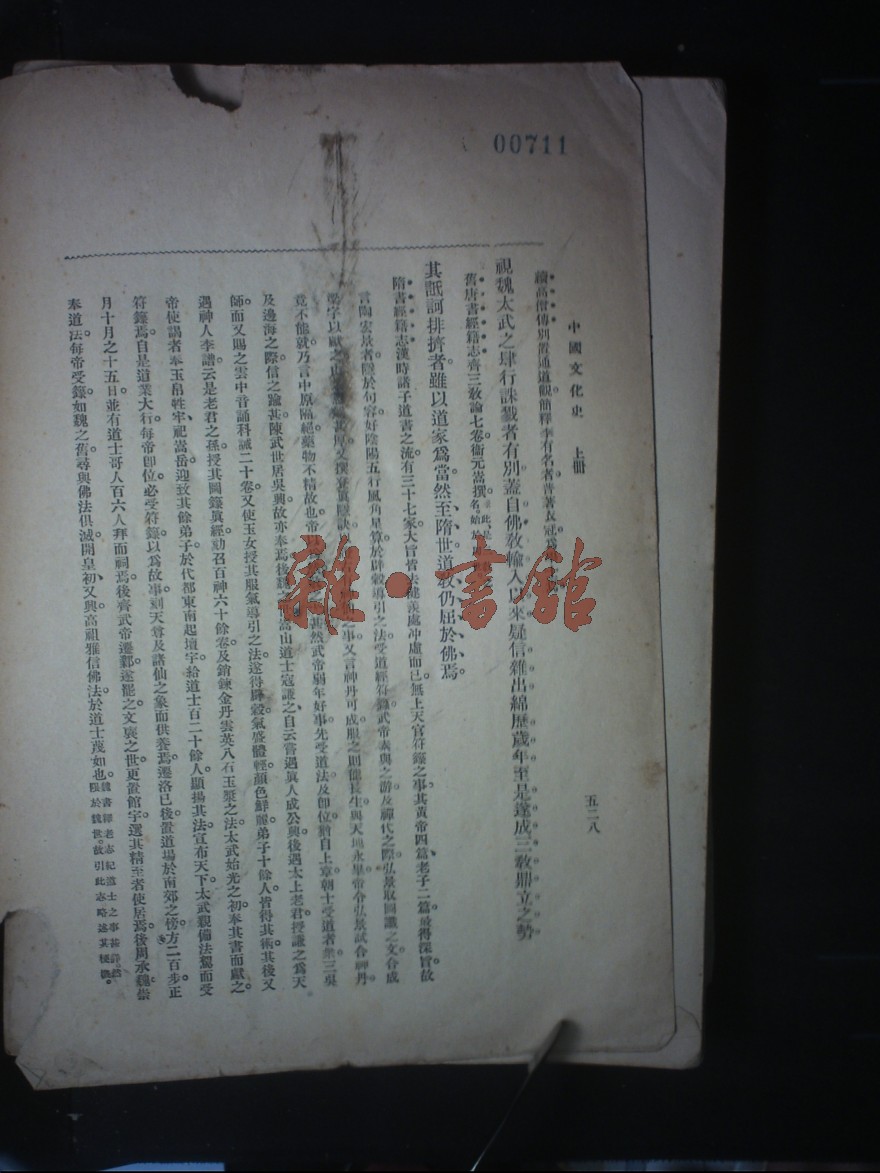 00711
中國文化史 上冊
五二八
續高僧傳別置通道觀簡釋李有名者普著衣冠爲
視魏太武之肆行誅戮者有別。蓋自佛敎輸入以來疑信雜出綿歷歲年至是遂成三敎鼎立之勢
舊唐書經籍志齊三敎論七卷衞元嵩撰。此
名。始於
其詆訶排擠者雖以道家爲當然至隋世道敎仍屈於佛焉。
隋書經籍志漢時諸子道書之流有三十七家大旨皆去健羨處冲虛而已無上天官符籙之事其黃帝四篇老子二篇最得深旨故
言陶宏景者隱於句容好陰陽五行風角星算於辟穀導引之法受道經符籙武帝素與之游及禪代之際弘景取圖讖之文合成
景梁字以獻之 撰登眞隱訣 事又言神丹可成服之則能長生與天地永畢帝令弘景試合神丹
竟不能就乃言中原隔絕藥物不精故也帝 甚然武帝弱年好事先受道法及卽位猶自上章朝士受道者衆三吳
及邊海之際信之踰甚陳武世居吳興故亦奉焉後魏之世嵩山道士寇謙之自云嘗遇眞人成公興後遇太上老君授謙之爲天
師而又賜之雲中音誦科誡二十卷又使玉女授其服氣導引之法遂得辟穀氣盛體輕顏色鮮麗弟子十餘人皆得其術其後又
遇神人李譜云是老君之孫授其圖籙眞經劾召百神六十餘卷及銷鍊金丹雲英八石玉漿之法太武始光之初奉其書而獻之
帝使謁者奉玉帛牲牢祀嵩岳迎致其餘弟子於代都東南起壇宇給道士百二十餘人顯揚其法宣布天下太武親備法駕而受
符籙焉自是道業大行每帝卽位必受符籙以爲故事刻天尊及諸仙之象而供養焉遷洛已後置道場於南郊之傍方二百步正
月十月之十五日並有道士哥人百六人拜而祠焉後齊武帝遷鄴遂罷之文襄之世更置館宇選其精至者使居焉後周承魏崇
奉道法每帝受籙如魏之舊尋與佛法俱滅開皇初又興高祖雅信佛法於道士蔑如也。魏書釋老志紀道士之事甚詳然
限於魏世。故引此志略述其梗槪。
雜·書館